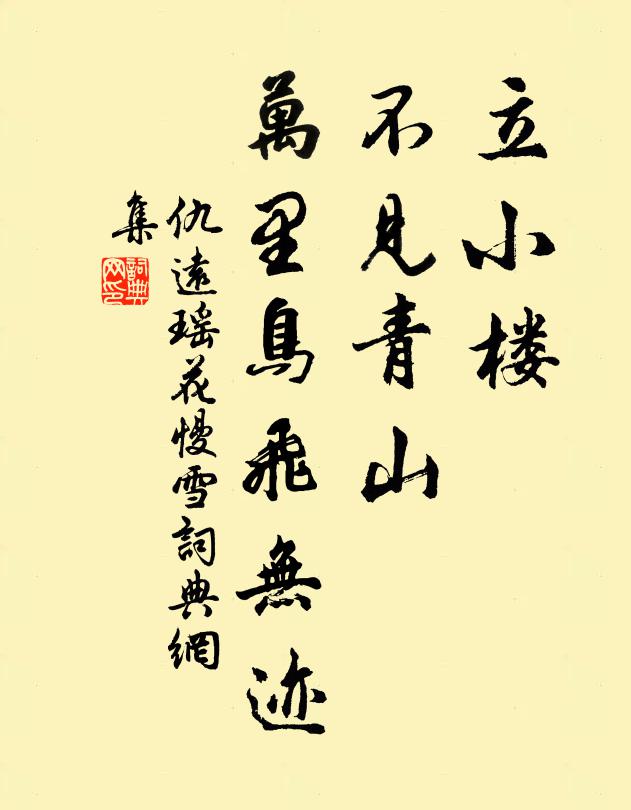 立小楼
不見青山
萬里鳥飛無迹
仇遠瑶花慢雪詞典網
集
詞典
网印